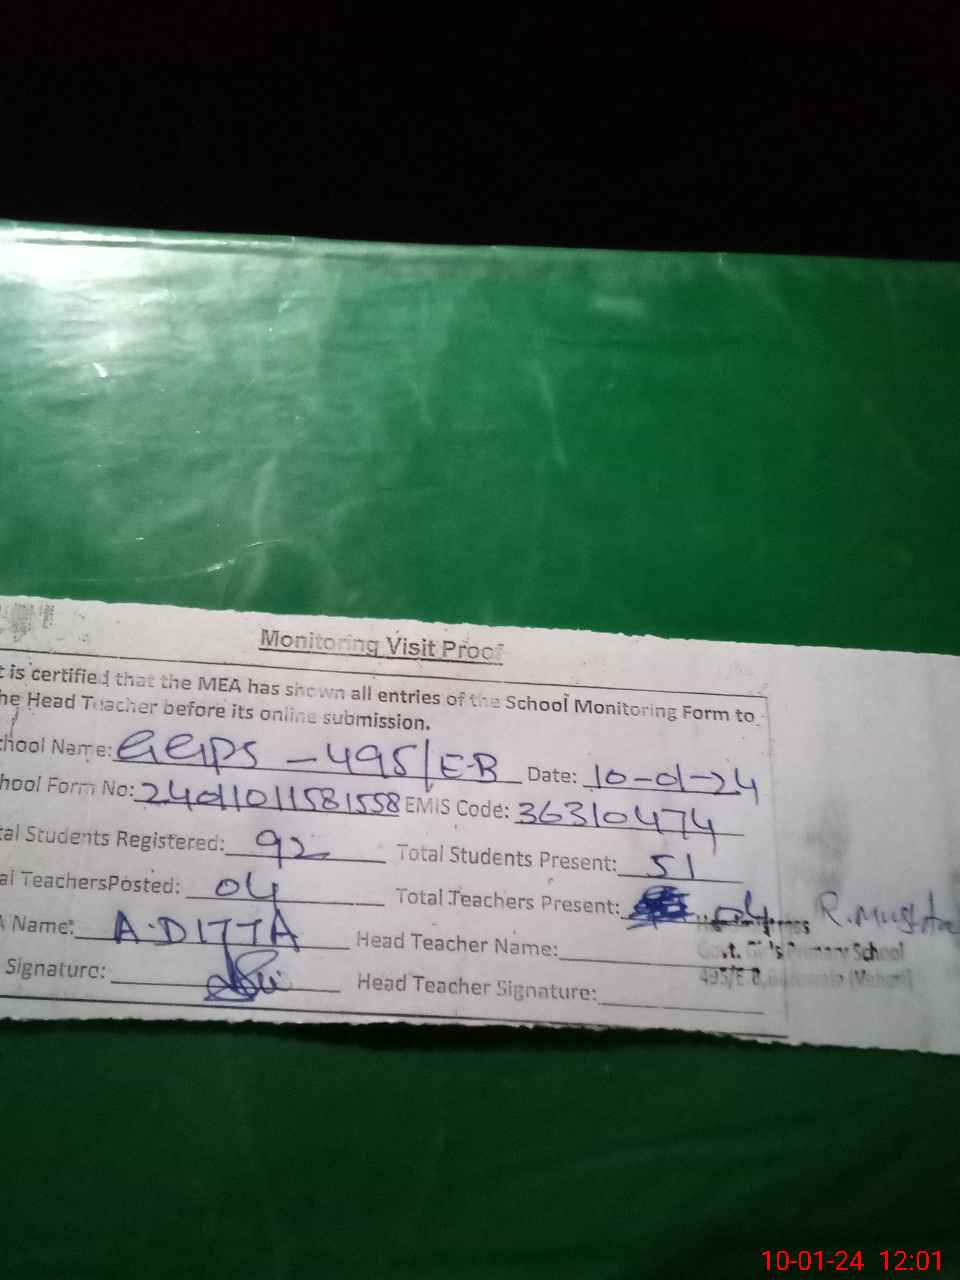 Monitoring Visit Proof
t is certified that the MEA has shown all entries of the School Monitoring Form to
he Head Teacher before its online submission.
hool Name: GGPS - 495/E-B Date: 10-01-24
hool Form No: 24011011581558 EMIS Code: 36310474
tal Students Registered: 92 Total Students Present: 51
al TeachersPosted: 04 Total Teachers Present: 04
A Name: A.DITTA Head Teacher Name:
Signature: Head Teacher Signature:
R.Mush
Govt. Girl's Primary School
495/E.B,
10-01-24 12:01